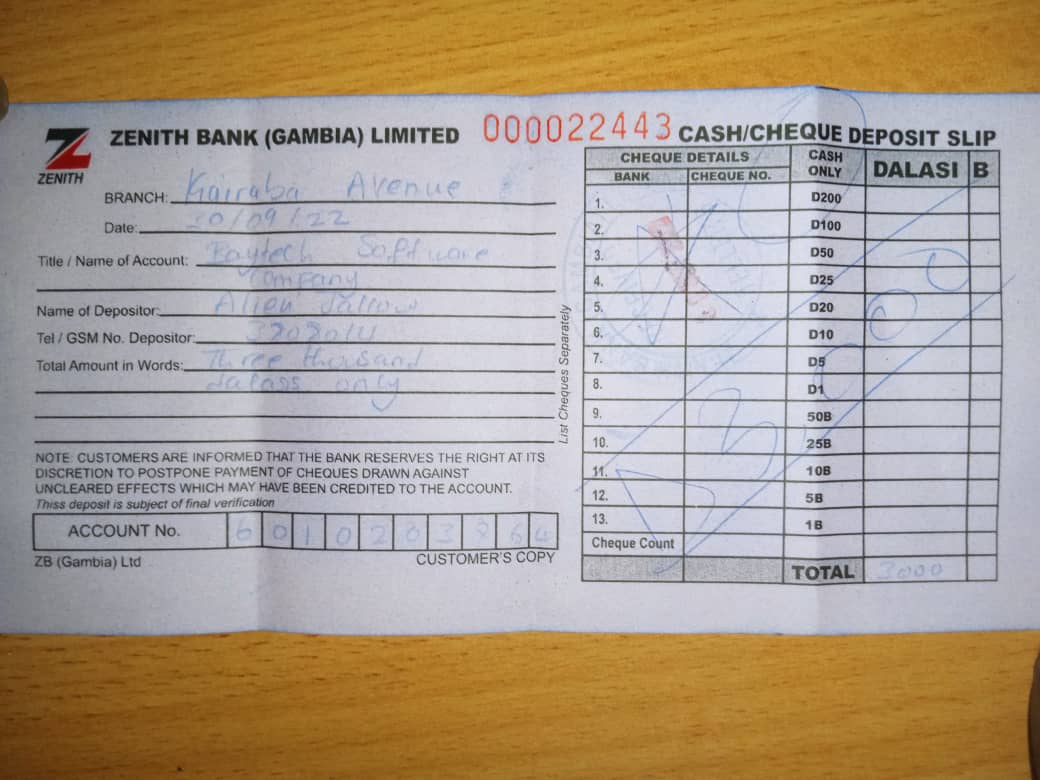 ZENITH
ZENITH BANK (GAMBIA) LIMITED
000022443
CASH/CHEQUE DEPOSIT SLIP
BRANCH: Kairaba Avenue
Date: 30/09/22
Title / Name of Account: Baytech Software
Company
Name of Depositor: Alieu Jallow
Tel / GSM No. Depositor:
Total Amount in Words: Three thousand
dalasis only
NOTE: CUSTOMERS ARE INFORMED THAT THE BANK RESERVES THE RIGHT AT ITS
DISCRETION TO POSTPONE PAYMENT OF CHEQUES DRAWN AGAINST
UNCLEARED EFFECTS WHICH MAY HAVE BEEN CREDITED TO THE ACCOUNT.
Thiss deposit is subject of final verification
ACCOUNT No. 6010203864
ZB (Gambia) Ltd
CUSTOMER'S COPY
List Cheques Separately
CHEQUE DETAILS CASH ONLY DALASI B
BANK CHEQUE NO.
1. D200
2. D100
3. D50
4. D25
5. D20
6. D10
7. D5
8. D1
9. 50B
10. 25B
11. 10B
12. 5B
13. 1B
Cheque Count
TOTAL 3000
3000